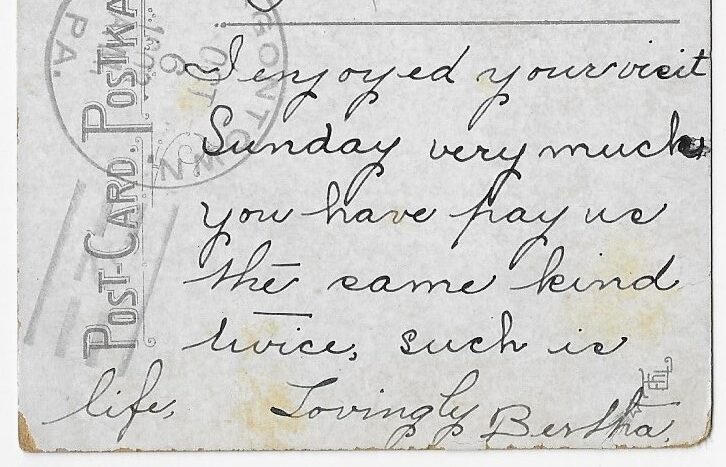 I enjoyed your visit
Sunday very much
you have pay us
the same kind
twice, such is
life,
Lovingly Bertha.
POST-CARD POSTKA
GONTOWN
PA.
OCT
6